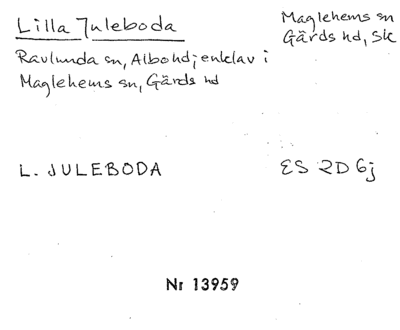 Lilla Juleboda
Maglehems sn
Gärds hd, Sk
Ravlunda sn, Albo hd; enklav i
Maglehems sn, Gärds hd
L. JULEBODA
ES 2D 6j
Nr 13959